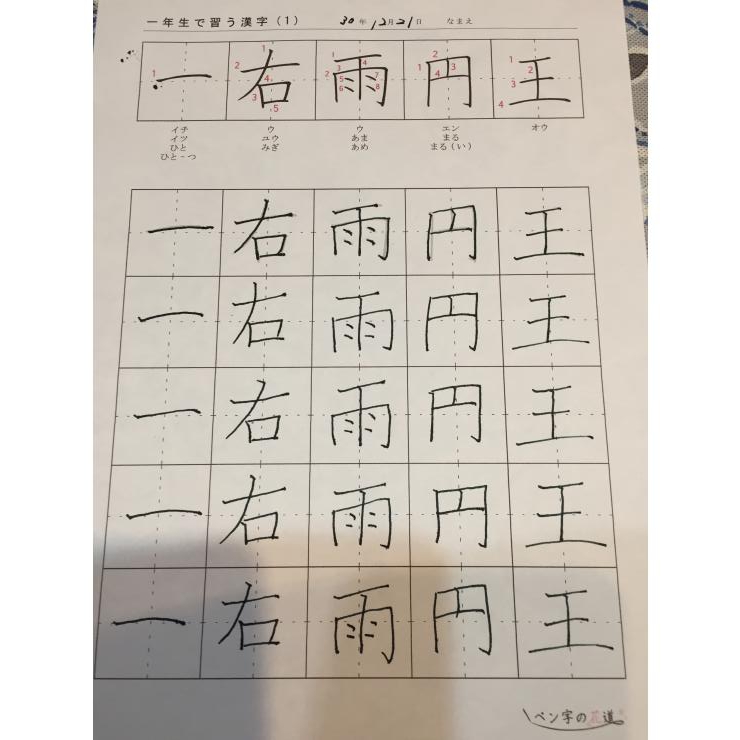 一年生で習う漢字(1) 30年12月21日 なまえ
一 右 雨 円 王
イチ ウ ウ エン オウ
イツ ユウ あま まる
ひと みぎ あめ まる(い)
ひと-つ
一 右 雨 円 王
一 右 雨 円 王
一 右 雨 円 王
一 右 雨 円 王
一 右 雨 円 王
ペン字の花道